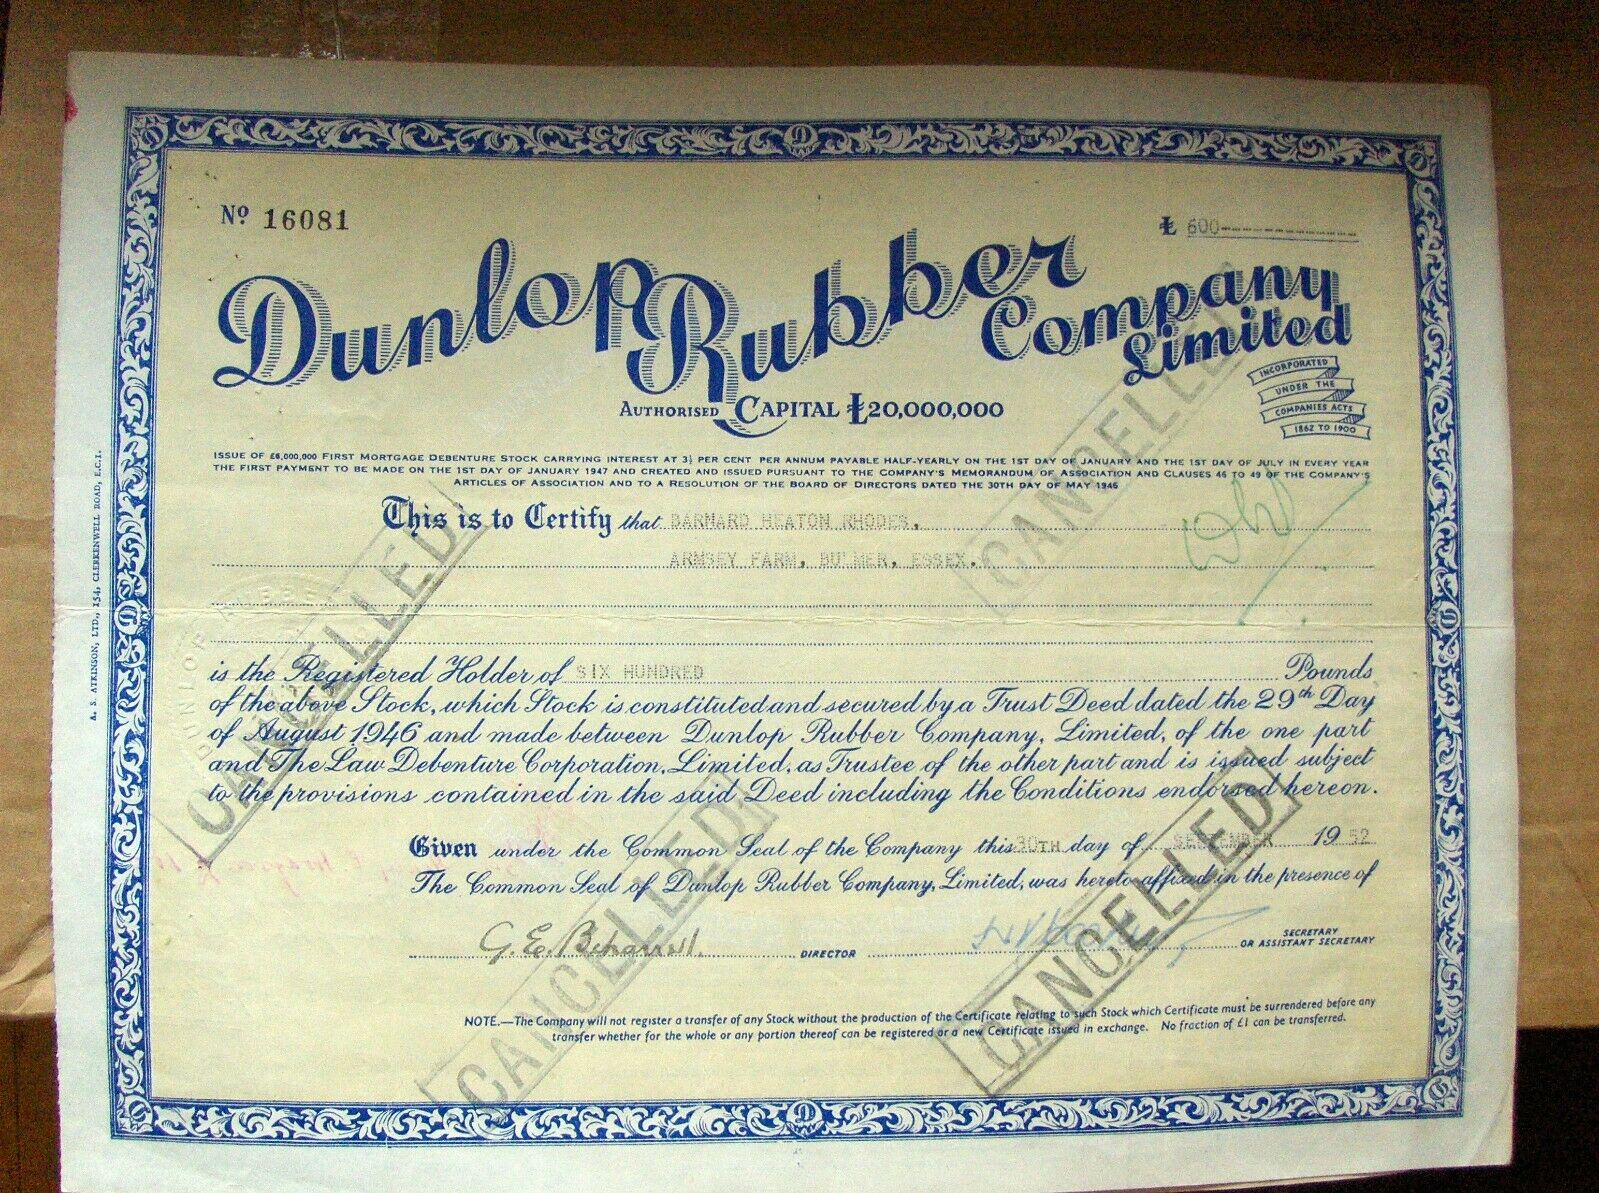 Nº 16081
£ 600
Dunlop Rubber Company Limited
AUTHORISED CAPITAL £20,000,000
INCORPORATED
UNDER THE
COMPANIES ACTS
1862 TO 1900
ISSUE OF £6,000,000 FIRST MORTGAGE DEBENTURE STOCK CARRYING INTEREST AT 3½ PER CENT PER ANNUM PAYABLE HALF-YEARLY ON THE 1ST DAY OF JANUARY AND THE 1ST DAY OF JULY IN EVERY YEAR
THE FIRST PAYMENT TO BE MADE ON THE 1ST DAY OF JANUARY 1947 AND CREATED AND ISSUED PURSUANT TO THE COMPANY'S MEMORANDUM OF ASSOCIATION AND CLAUSES 46 TO 49 OF THE COMPANY'S
ARTICLES OF ASSOCIATION AND TO A RESOLUTION OF THE BOARD OF DIRECTORS DATED THE 30TH DAY OF MAY 1946
This is to Certify that BARNARD HEATON RHODES.
ARMSEY FARM, BULMER, ESSEX.
is the Registered Holder of SIX HUNDRED Pounds
of the above Stock, which Stock is constituted and secured by a Trust Deed dated the 29th Day
of August 1946 and made between Dunlop Rubber Company, Limited, of the one part
and The Law Debenture Corporation, Limited, as Trustee of the other part and is issued subject
to the provisions contained in the said Deed including the Conditions endorsed hereon.
Given under the Common Seal of the Company this 30TH day of SEPTEMBER 1952
The Common Seal of Dunlop Rubber Company, Limited, was hereto affixed in the presence of
G. E. Beharrell. DIRECTOR
SECRETARY
OR ASSISTANT SECRETARY
NOTE.—The Company will not register a transfer of any Stock without the production of the Certificate relating to such Stock which Certificate must be surrendered before any
transfer whether for the whole or any portion thereof can be registered or a new Certificate issued in exchange. No fraction of £1 can be transferred.
CANCELLED
CANCELLED
CANCELLED
CANCELLED
DUNLOP RUBBE
A. S. ATKINSON, LTD., 154, CLERKENWELL ROAD, E.C.1.